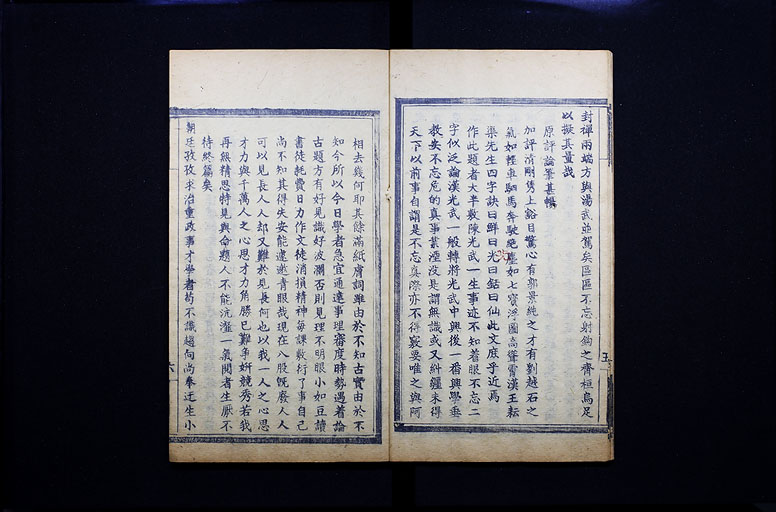 封禪兩端方與湯武並駕矣區區不忘射鉤之齊桓烏足
以擬其量哉
原評論筆甚暢
加評清剛雋上豁目驚心有郭景純之才有劉越石之
氣如輕車駟馬奔馳絕塵如七寶浮圖高聳霄漢王耘
渠先生四字訣曰鮮曰光曰鋭曰仙此文庶乎近焉
作此題者大半敷陳光武一生事迹不知着眼不忘二
字似泛論漢光武一般轉將光武中興後一番興學垂
教安不忘危的真事業湮沒是謂無識或又糾纒未得
天下以前事自謂是不忘真際亦不得竅要唯之與阿
五
相去幾何耶其餘滿紙膚詞雖由於不知古實由於不
知今所以今日學者急宜通達事理審度時勢遇着論
古題方有好見識好波瀾否則見理不明眼小如豆讀
書徒耗費日力作文徒消損精神每課敷衍了事自己
尚不知其得失安能邀遨青眼哉現在八股既廢人人
可以見長人人却又難於見長何也以我一人之心思
才力與千萬人之心思才力角勝已難爭姸競秀若我
再無精思特見與命題人不能沆瀣一氣閱者生厭不
待終篇矣
朝廷孜孜求治重政事才學者苟不識趨向尚奉迂生小
六